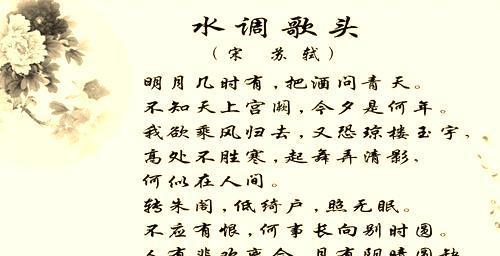 水调歌头
(宋 苏轼)
明月几时有,把酒问青天。
不知天上宫阙,今夕是何年。
我欲乘风归去,又恐琼楼玉宇,
高处不胜寒,起舞弄清影,
何似在人间。
转朱阁,低绮户,照无眠。
不应有恨,何事长向别时圆。
人有悲欢离合,月有阴晴圆缺